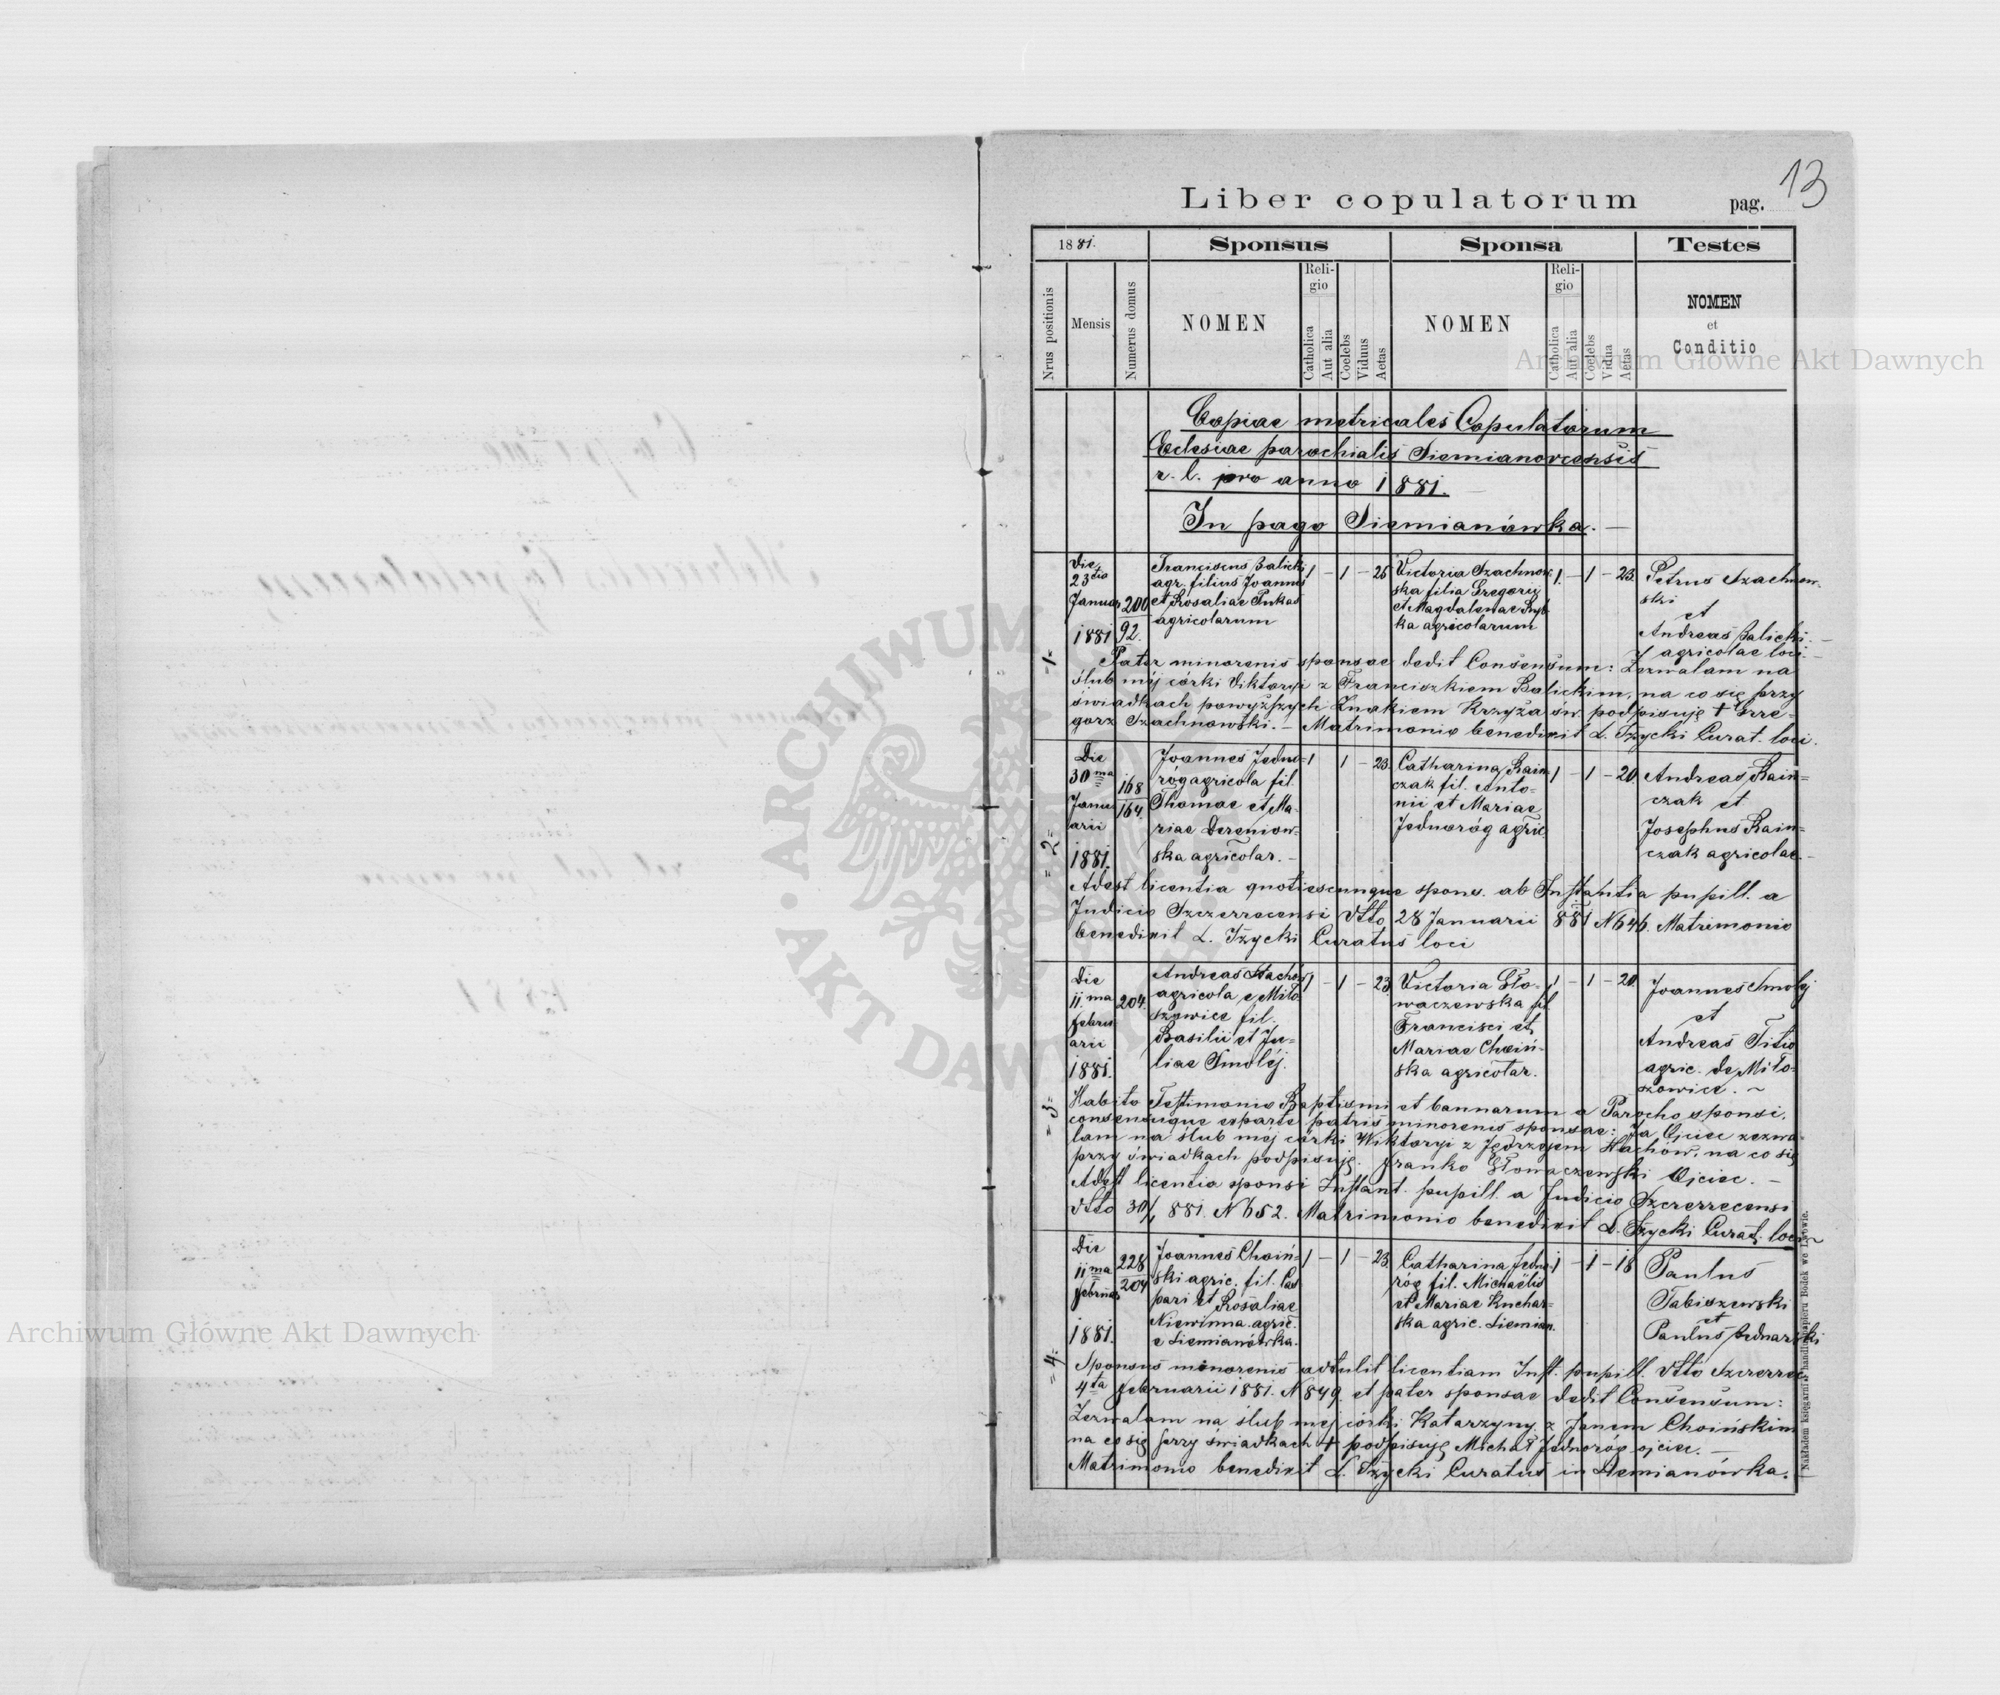 13
Liber copulatorum pag.
1881. Sponsus Sponsa Testes
Nrus positionis Mensis Numerus domus NOMEN Religio Catholica Aut alia Coelebs Viduus Aetas NOMEN Religio Catholica Aut alia Coelebs Vidua Aetas NOMEN et Conditio
Copiae metricales Copulatorum
Ecclesiae parochialis Siemianovcensis
r. l. pro anno 1881.
In pago Siemianówka. —
-1-
Die
23tio
Januar
1881
200
92.
Franciscus Balicki
agr. filius Joannis
et Rosaliae Pukas
agricolarum
1 – 1 – 25
Victoria Szachnow
ska filia Gregorii
et Magdalenae Ryb
ka agricolarum
1. – 1 – 23.
Petrus Szachnow-
ski
et
Andreas Balicki. —
agricolae loci. —
Pater minorenis sponsae dedit Consensum: Zezwalam na
ślub méj córki Viktoryi z Franciszkiem Balickim, na co się przy
świadkach powyższych Znakiem Krzyża św. podpisuję + Grze-
gorz Szachnowski. – Matrimonio benedixit L. Iżycki Curat. loci.
=2=
Die
30ma
Janu
arii
1881.
168
164.
Joannes Jedno-
róg agricola fil.
Thomae et Ma-
riae Dereniow-
ska agricolar. –
1 1 – 23.
Catharina Rain-
czak fil. Anto-
nii et Mariae
Jednoróg agric.
1 – 1 – 20
Andreas Rain=
czak et
Josephus Rain=
czak agricolae. –
Adest licentia quotiescunque spons. ab Instantia pupill. a
Judicio Szczerrecensi dtto 28 Januarii 881 N 646. Matrimonio
benedixit L. Iżycki Curatus loci
=3=
Die
11ma
Febru
arii
1881.
204.
Andreas Stachów
agricola e Miło
szowice fil.
Basilii et Ju-
liae Smoléj.
1 – 1 – 23
Victoria Gło-
waczewska fil.
Francisci et
Mariae Choiń-
ska agricolar.
1 – 1 – 20
Joannes Smolij
et
Andreas Titio
agric. de Miło-
szowice. ~
Habito Testimonio Baptismi et bannorum a Parocho sponsi,
consensuque ex parte patris minorenis sponsae: Ja Ojciec zezwa-
lam na ślub mej córki Wiktoryi z Jędrzejem Stachów, na co się
przy świadkach podpisuję. Franko Głowaczewski Ojciec. –
Adest licentia sponsi Instant. pupill. a Judicio Szczerrecensi
dtto 30/1 881. N 652. Matrimonio benedixit L. Iżycki Curat. loci
=4=
Die
11ma
Februar
1881.
228
204
Joannes Choiń=
ski agric. fil. Cas
pari et Rosaliae
Niewinna agric.
e Siemianówka.
1 – 1 – 23
Catharina Jedno
róg fil. Michaëlis
et Mariae Kuchar-
ska agric. Siemian.
1 – 1 – 18
Paulus
Tabiszewski
et
Paulus Bednarski
Sponsus minorenis adtulit licentiam Inst. pupill. dtto Szczerrec
4ta Februarii 1881. N 849. et pater sponsae dedit Consensum:
Zezwalam na ślub mej córki Katarzyny z Janem Choińskim
na co się przy świadkach + podpisuję Michał Jednoróg ojciec. –
Matrimonio benedixit L. Iżycki Curatus in Siemianówka.
Nakładem księgarni i handlu papieru Bodek we Lwowie.
Archiwum Główne Akt Dawnych
Archiwum Główne Akt Dawnych